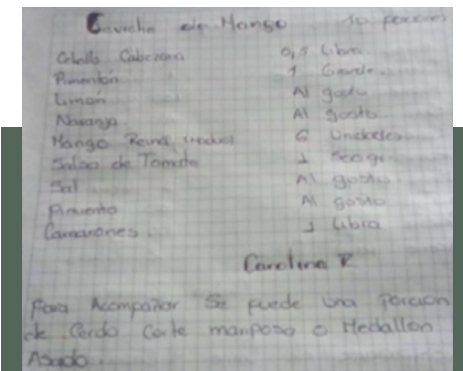 Ceviche de Mango 10 porciones
Cebolla Cabezona 0,5 Libra
Pimentón 1 Grande
Limon Al gusto
Naranja Al gosto
Mango Reina 6 Unidades
Salsa de Tomate 1 500 gr
Sal Al gusto
Pimienta Al gusto
Camarones 1 Libra
Carolina R
Para Acompañar Se puede una porción
de Cerdo Corte mariposa o Medallon
Asado